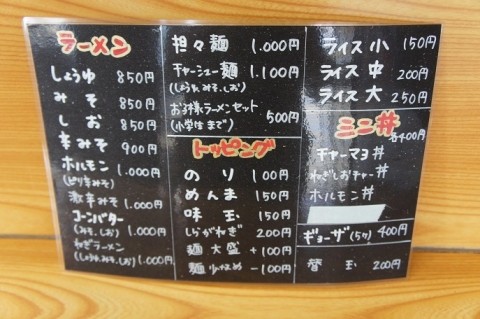 ラーメン
しょうゆ 850円
みそ 850円
しお 850円
辛みそ 900円
ホルモン 1.000円
(ピリ辛みそ)
激辛みそ 1.000円
コーンバター 1.000円
(みそ,しお)
ねぎラーメン
(しょうゆ,みそ,しお) 1.000円
担々麺 1.000円
チャーシュー麺 1.100円
(しょうゆ,みそ,しお)
お子様ラーメンセット
(小学生まで) 500円
トッピング
のり 100円
めんま 150円
味玉 150円
しらがねぎ 200円
麺大盛 +100円
麺少なめ -100円
ライス小 150円
ライス中 200円
ライス大 250円
ミニ丼
各400円
チャーマヨ丼
ねぎしおチャー丼
ホルモン丼
ギョーザ(5ケ) 400円
替玉 200円